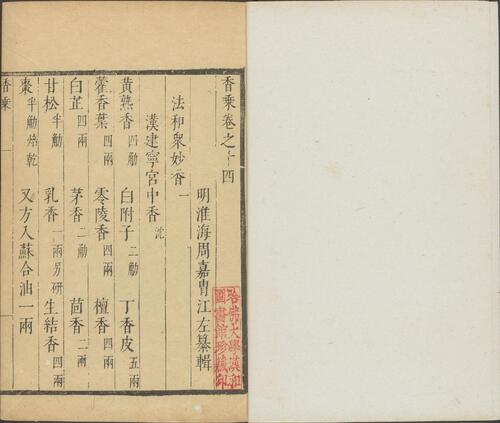 香乘卷之十四
明淮海周嘉胄江左纂輯
法和眾妙香一
漢建寧宮中香 沈
黃熟香四觔 白附子二觔 丁香皮五兩
藿香葉四兩 零陵香四兩 檀香四兩
白芷四兩 茅香二觔 茴香二兩
甘松半觔 乳香一兩另研 生結香四兩
棗半觔焙乾 又方入蘇合油一兩
香乘
哈佛大學漢和
圖書館珍藏印